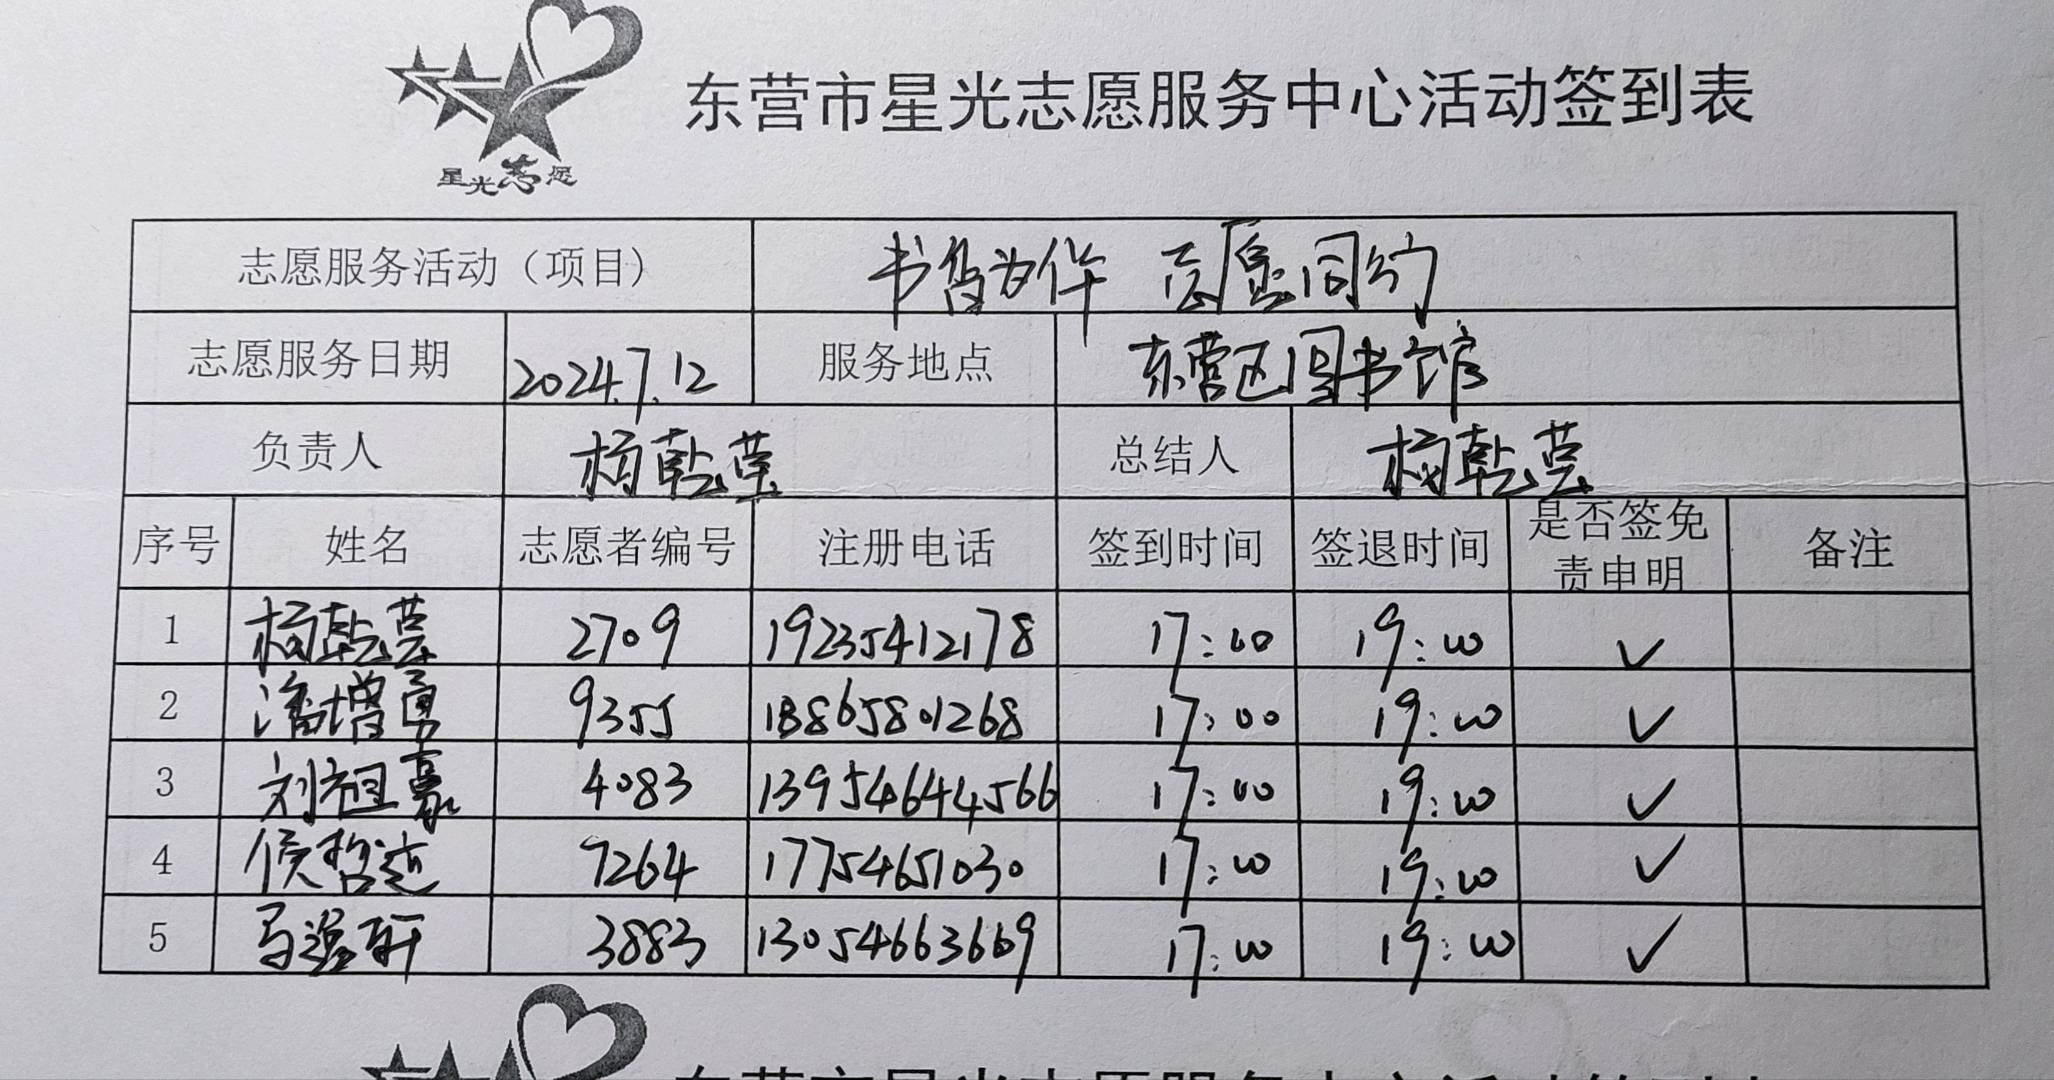 星光志愿
东营市星光志愿服务中心活动签到表
志愿服务活动（项目) 书香为伴 志愿同行
志愿服务日期 2024.7.12 服务地点 东营区图书馆
负责人 杨乾莹 总结人 杨乾莹
序号 姓名 志愿者编号 注册电话 签到时间 签退时间 是否签免责申明 备注
1 杨乾莹 2709 19235412178 17:00 19:00 ✓
2 潘增勇 9355 18865801268 17:00 19:00 ✓
3 刘祖豪 4083 13954644566 17:00 19:00 ✓
4 侯哲 7264 17754651030 17:00 19:00 ✓
5 马逸轩 3883 13054663669 17:00 19:00 ✓